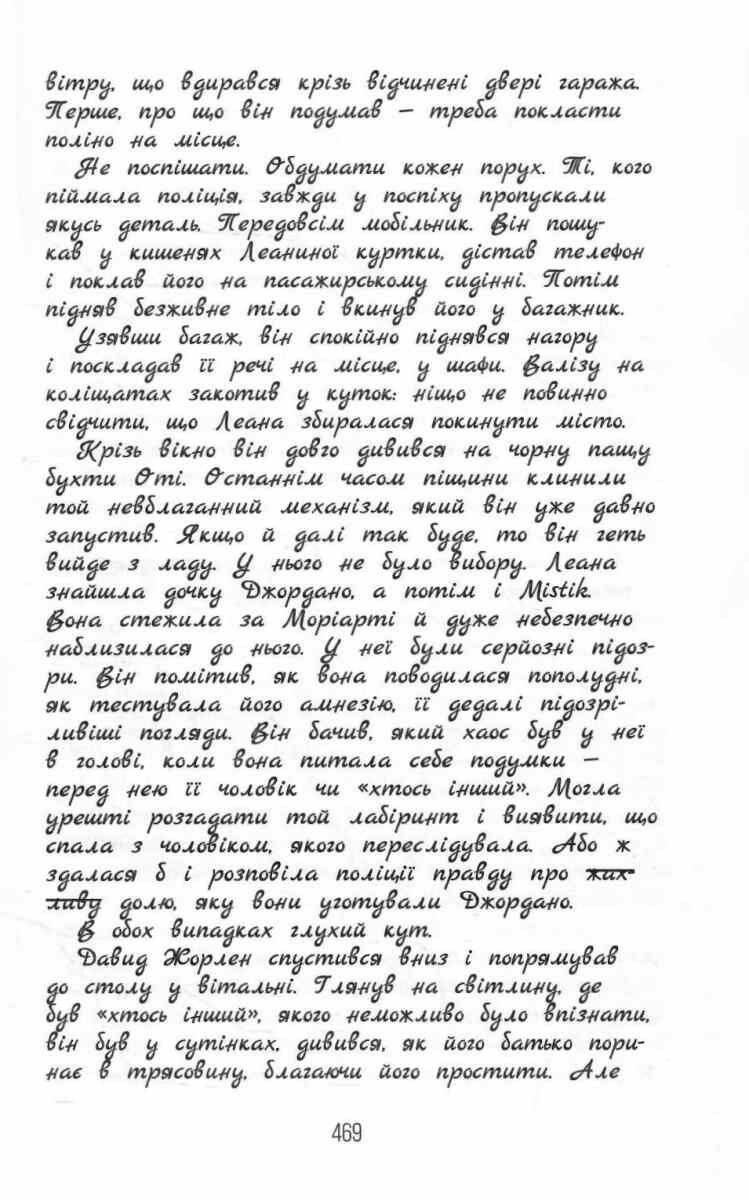 вітру, що вдирався крізь відчинені двері гаража.
Перше, про що він подумав — треба покласти
поліно на місце.
Не поспішати. Обдумати кожен порух. Ті, кого
піймала поліція, завжди у поспіху пропускали
якусь деталь. Передовсім мобільник. Він пошу-
кав у кишенях Леаниної куртки, дістав телефон
і поклав його на пасажирському сидінні. Потім
підняв безживне тіло і вкинув його у багажник.
Узявши багаж, він спокійно піднявся нагору
і поскладав її речі на місце, у шафи. Валізу на
коліщатах закотив у куток: ніщо не повинно
свідчити, що Леана збиралася покинути місто.
Крізь вікно він довго дивився на чорну пащу
бухти Оті. Останнім часом піщини клинили
той невблаганний механізм, який він уже давно
запустив. Якщо й далі так буде, то він геть
вийде з ладу. У нього не було вибору. Леана
знайшла дочку Джордано, а потім і Mistik.
Вона стежила за Моріарті й дуже небезпечно
наблизилася до нього. У неї були серйозні підоз-
ри. Він помітив, як вона поводилася пополудні,
як тестувала його амнезію, її дедалі підозрі-
ливіші погляди. Він бачив, який хаос був у неї
в голові, коли вона питала себе подумки —
перед нею її чоловік чи «хтось інший». Могла
урешті розгадати той лабіринт і виявити, що
спала з чоловіком, якого переслідувала. Або ж
здалася б і розповіла поліції правду про жах-
ливу долю, яку вони уготували Джордано.
В обох випадках глухий кут.
Давид Жорлен спустився вниз і попрямував
до столу у вітальні. Глянув на світлину, де
був «хтось інший», якого неможливо було впізнати,
він був у сутінках, дивився, як його батько пори-
нає в трясовину, благаючи його простити. Але
469